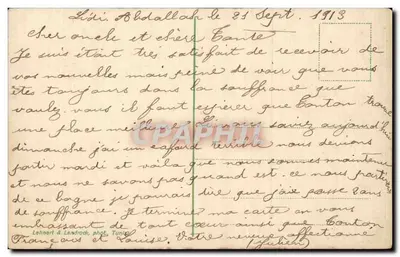 Sidi Abdallah le 21 Sept. 1913
cher oncle et chère Tante
Je suis était très satisfait de recevoir de
vos nouvelles mais peine de voir que vous
êtes toujours dans la souffrance que
voulez vous il faut espérer que Tonton trouve
une place meilleure Si vous saviez aujourd'hui
dimanche j'ai un cafard terrible nous devions
partir mardi et voilà que nous sommes maintenu
et nous ne savons pas quand est. ce nous partirons
de ce bagne je pourrais dire que j'aie passé 2 ans
de souffrance. Je termine ma carte en vous
embrassant de tout cœur ainsi que Tonton
François et Louise. Votre neveu affectionné
Lehnert & Landrock, phot. Tunis
CPARAMA